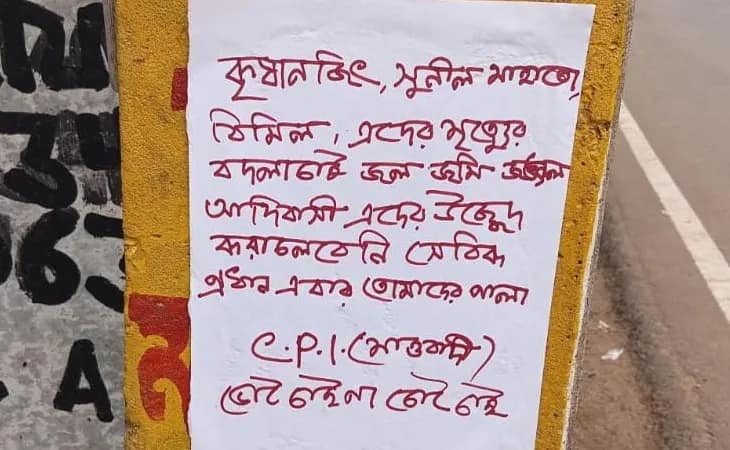 কৃষানজিৎ, সুনীল মাহাতো,
বিমিল, এদের মৃত্যুর
বদলাচাই জল জমি জঙ্গল
আদিবাসী এদের উচ্ছেদ
করাচলবেনি সেবিক
প্রধান এবার তোমাদের পালা
C.P.I. (মাওবাদী)
ভোট চাইনা চোট চাই